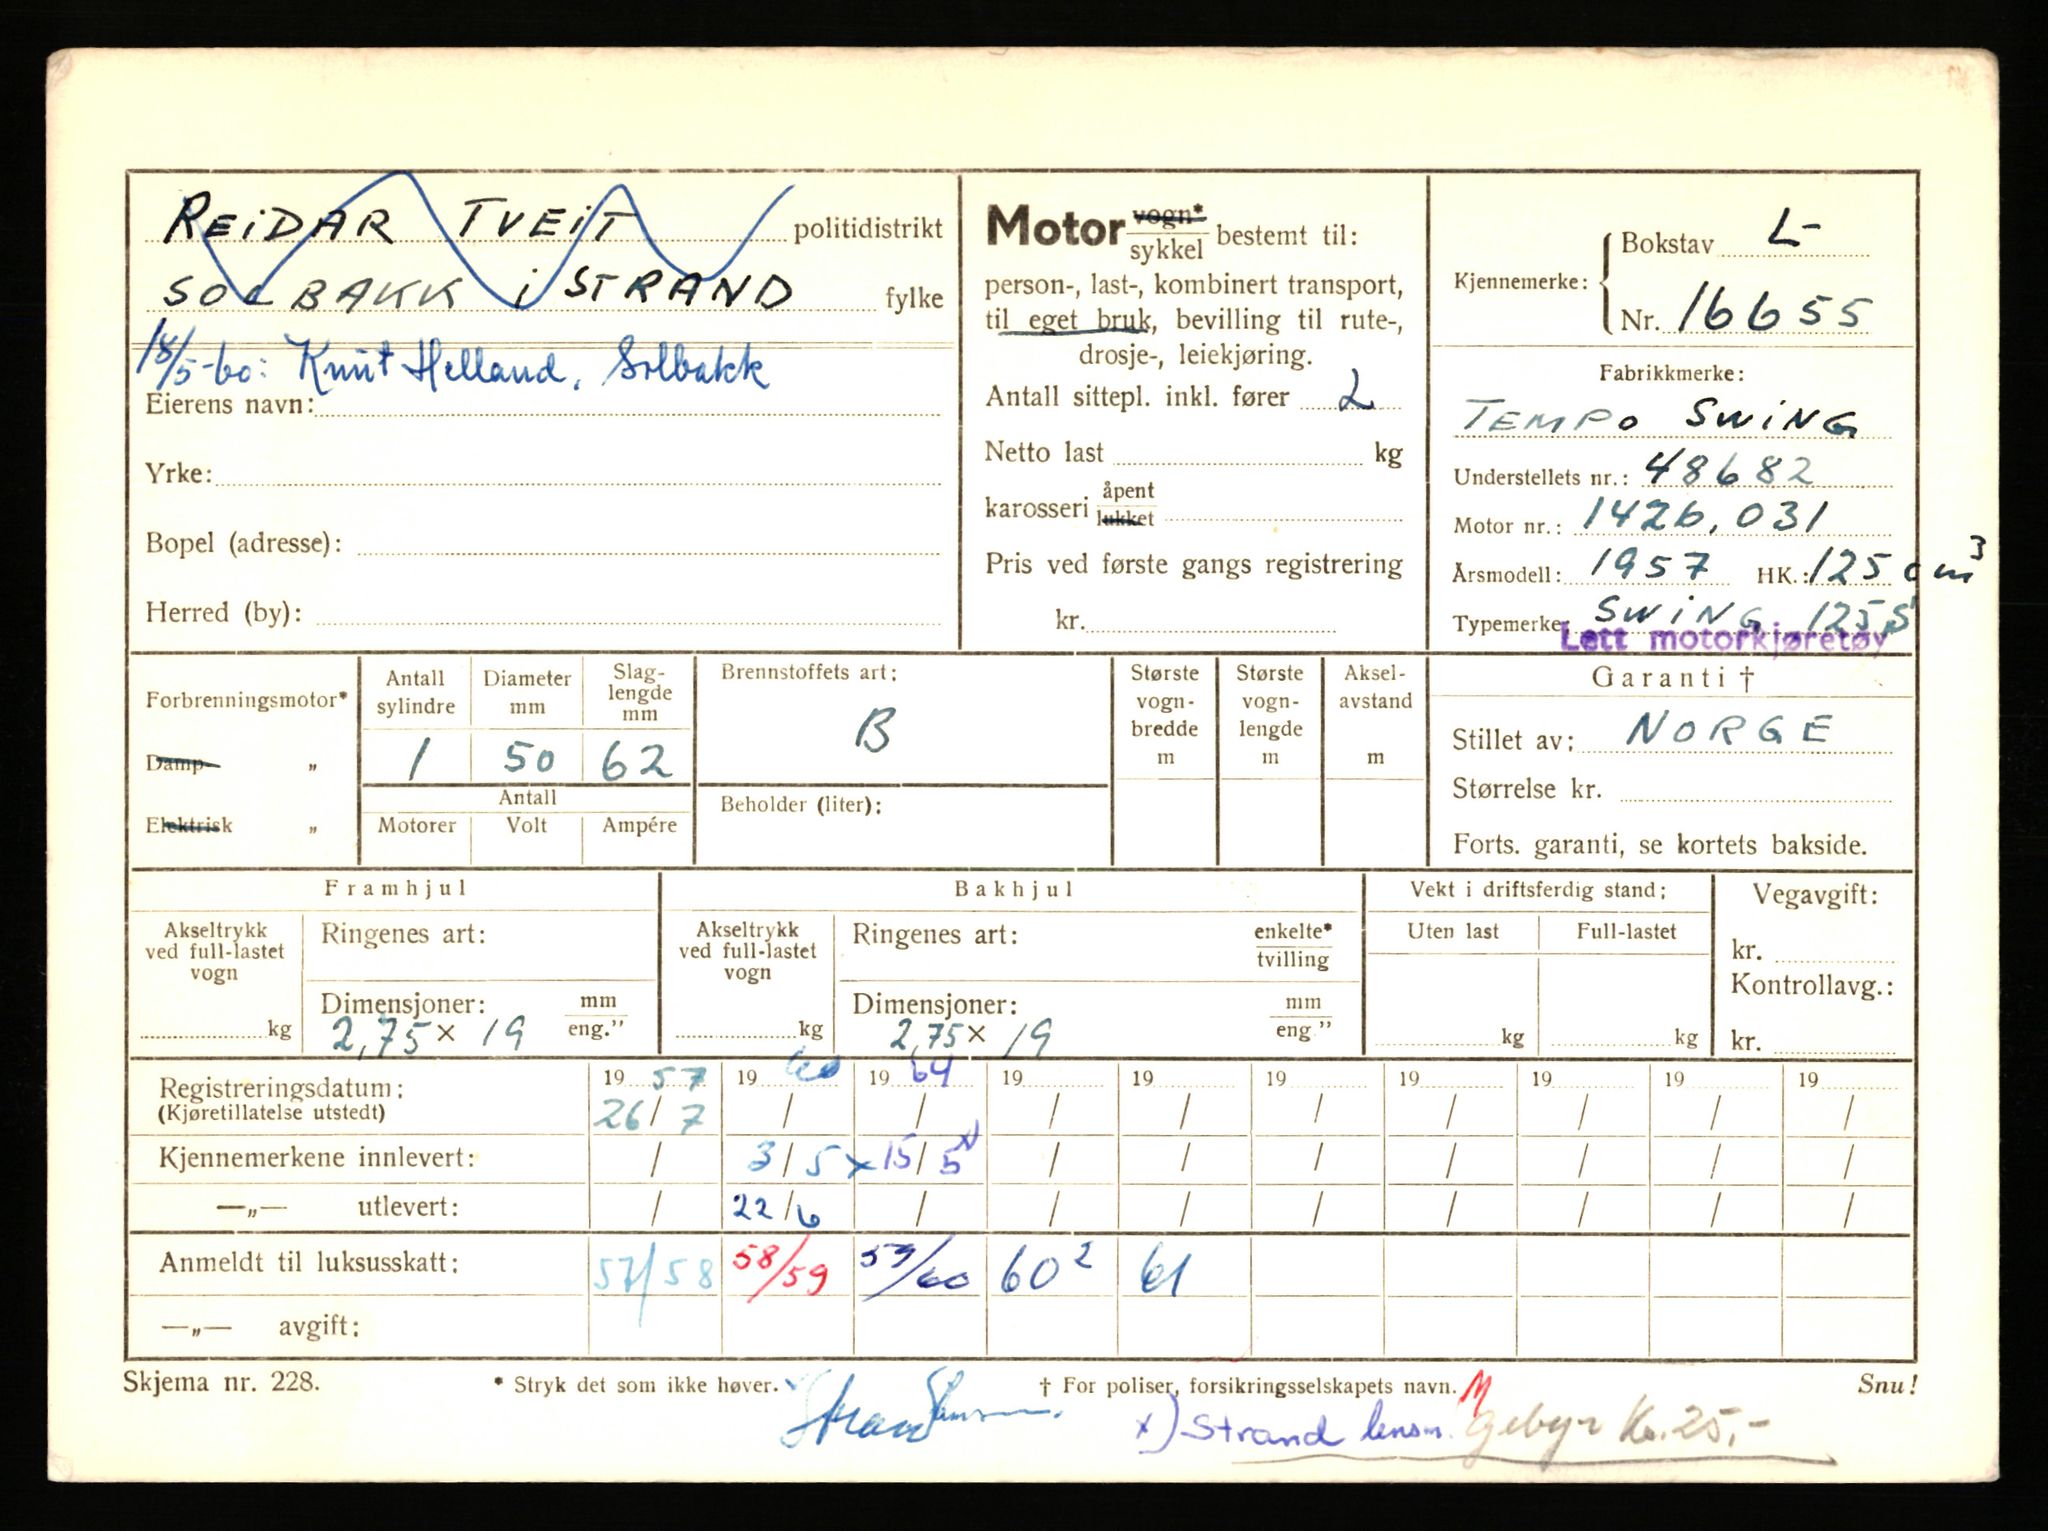 REIDAR TVEIT politidistrikt
SOLBAKK i STRAND fylke
18/5-60: Knut Helland, Solbakk
Eierens navn:
Yrke:
Bopel (adresse):
Herred (by):
Motor vogn* / sykkel bestemt til:
person-, last-, kombinert transport,
til eget bruk, bevilling til rute-,
drosje-, leiekjøring.
Antall sittepl. inkl. fører 2
Netto last kg
karosseri åpent / lukket
Pris ved første gangs registrering
kr.
Kjennemerke: Bokstav L-
Nr. 16655
Fabrikkmerke:
TEMPO SWING
Understellets nr.: 48682
Motor nr.: 1426,031
Årsmodell: 1957 HK.: 125 cm³
Typemerke: SWING 125S
Lett motorkjøretøy
Forbrenningsmotor*
Damp- „
Elektrisk „
Antall sylindre Diameter mm Slag-lengde mm
1 50 62
Antall
Motorer Volt Ampére
Brennstoffets art:
B
Beholder (liter):
Største vogn-bredde m
Største vogn-lengde m
Aksel-avstand m
Garanti †
Stillet av: NORGE
Størrelse kr.
Forts. garanti, se kortets bakside.
Framhjul
Akseltrykk ved full-lastet vogn
kg
Ringenes art:
Dimensjoner: mm / eng.”
2,75 x 19
Bakhjul
Akseltrykk ved full-lastet vogn
kg
Ringenes art: enkelte* / tvilling
Dimensjoner: mm / eng.”
2,75 x 19
Vekt i driftsferdig stand:
Uten last Full-lastet
kg kg
Vegavgift:
kr.
Kontrollavg.:
kr.
Registreringsdatum: 19 57 19 60 19 64 19 19 19 19 19 19 19
(Kjøretillatelse utstedt) 26/7 / / / / / / / / /
Kjennemerkene innlevert: / 3/5 x 15/5 x) / / / / / / /
—„— utlevert: / 22/6 / / / / / / / /
Anmeldt til luksusskatt: 57/58 58/59 59/60 60² 61
—„— avgift:
Skjema nr. 228.
* Stryk det som ikke høver.
† For poliser, forsikringsselskapets navn. M
Snu!
Strand
x) Strand lensm. Gebyr Kr. 25,-